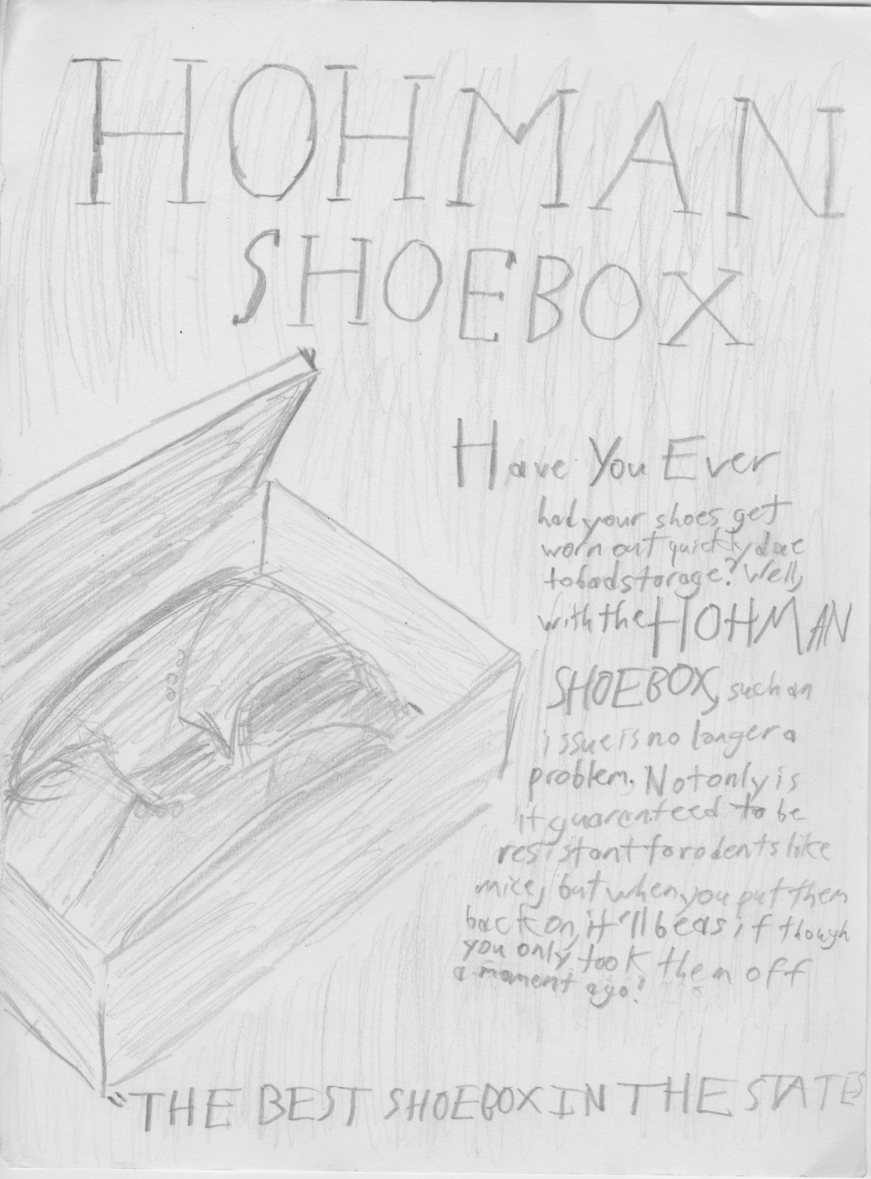 HOHMAN
SHOEBOX
Have You Ever
had your shoes get
worn out quickly due
to bad storage? Well,
with the HOHMAN
SHOEBOX, such an
issue is no longer a
problem. Not only is
it guarenteed to be
resistant to rodents like
mice, but when you put them
back on, it'll be as if though
you only took them off
a moment ago!
"THE BEST SHOEBOX IN THE STATES